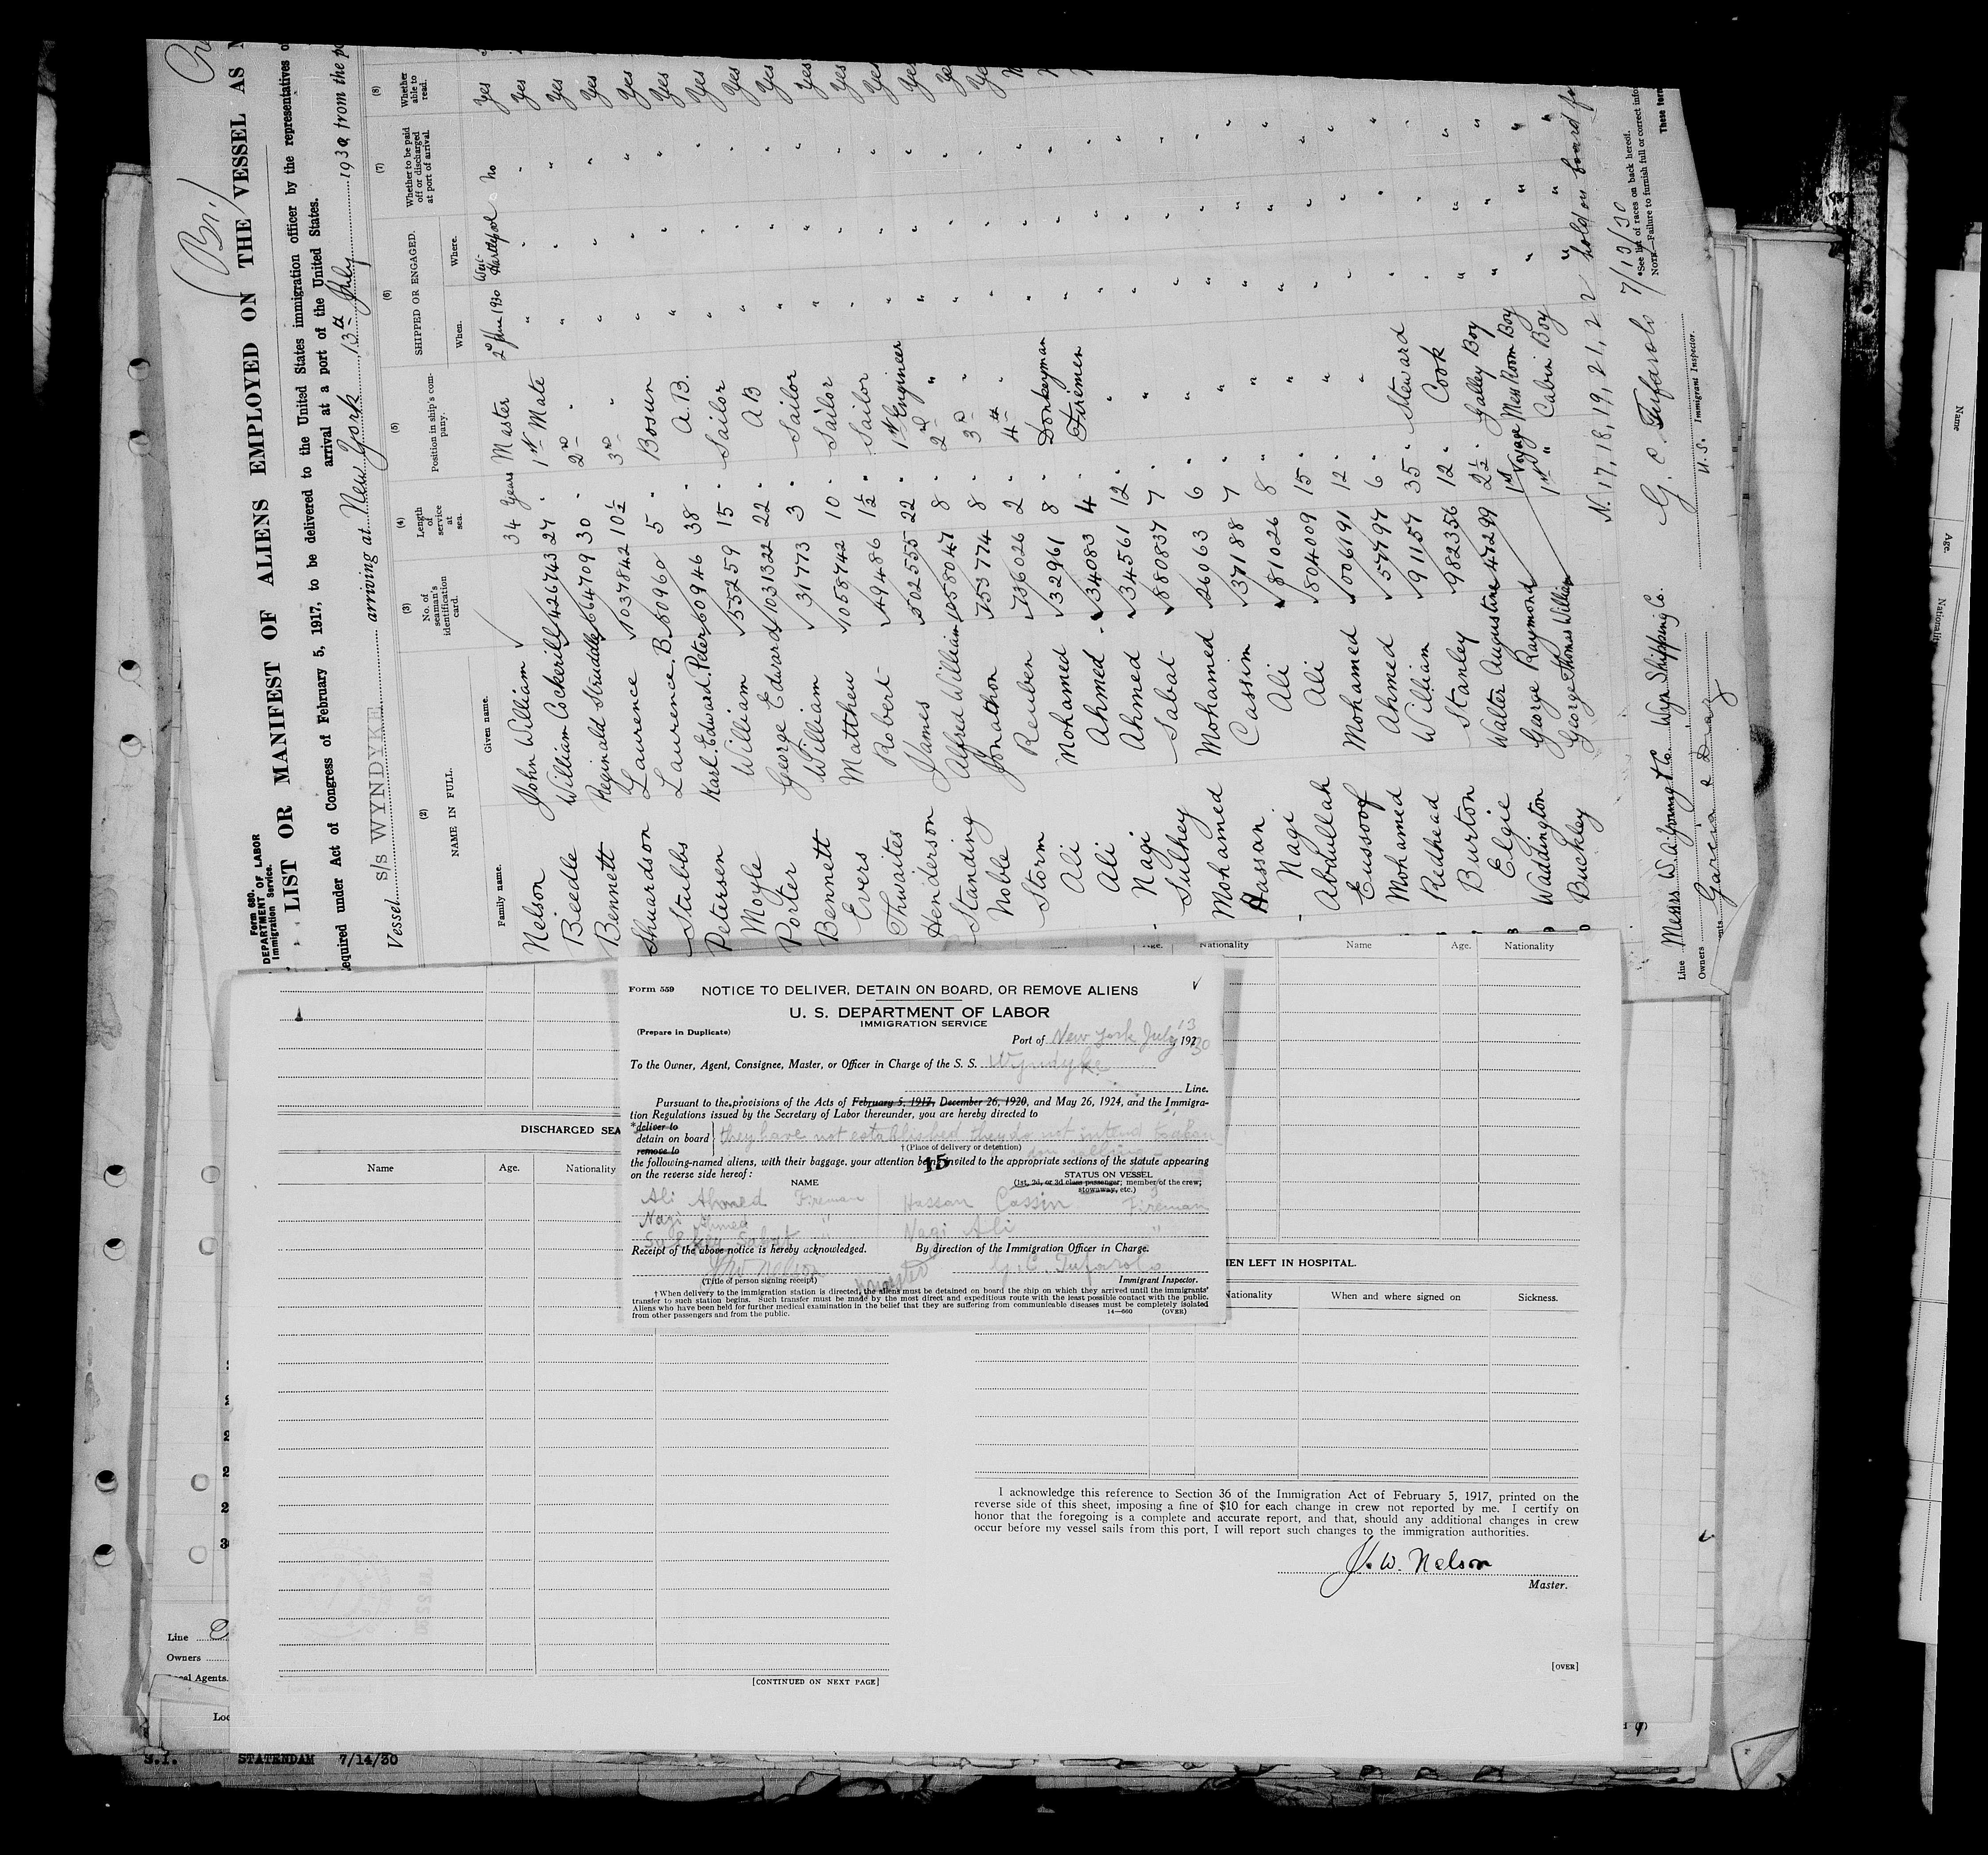 (Bri)
Form 680.
DEPARTMENT OF LABOR
Immigration Service.
LIST OR MANIFEST OF ALIENS EMPLOYED ON THE VESSEL AS
equired under Act of Congress of February 5, 1917, to be delivered to the United States immigration officer by the representatives o
arrival at a port of the United States.
Vessel s/s WYNDYKE arriving at New York 13th July 1930, from the po
(2) NAME IN FULL. (3) No. of seaman's identification card. (4) Length of service at sea. (5) Position in ship's company. (6) SHIPPED OR ENGAGED. (7) Whether to be paid off or discharged at port of arrival. (8) Whether able to read.
Family name. Given name. When. Where.
Nelson John William 34 Years Master 2nd June 1930 West Hartlepool No Yes
Beedle William Cockerill 426743 27 " 1st Mate " " " Yes
Bennett Reginald 664709 30 " 2nd " " " " Yes
Shuardson Laurence 1037842 10½ " 3rd " " " " Yes
Stubbs Laurence B. 80960 5 " Bosun " " " Yes
Petersen Karl. Edward. Peter 60946 38 " A.B. " " " Yes
Moyle William 55259 15 " Sailor " " " Yes
Porter George Edward 1031322 22 " A B " " " Yes
Bennett William 31773 3 " Sailor " " " Yes
Evers Matthew 1058742 10 " Sailor " " " Yes
Thwaites Robert 49486 1½ " Sailor " " " Yes
Henderson James 502555 22 " 1st Engineer " " " Yes
Standing Alfred William 1058047 8 " 2nd " " " " Yes
Noble Jonathon 753774 8 " 3rd " " " " Ye
Storm Reuben 736026 2 " 4th " " " " Ye
Ali Mohamed 32961 8 " Donkeyman " " "
Ali Ahmed 34083 4 " Firemen " " "
Nagi Ahmed 34561 12 " " " " "
Sulhey Sabat 880837 7 " " " " "
Mohamed Mohamed 26063 6 " " " " "
Hassan Cassim 37188 7 " " " " "
Nagi Ali 81026 8 " " " " "
Abdullah Ali 804009 15 " " " " "
Eussoof Mohamed 1006191 12 " " " " "
Mohamed Ahmed 57797 6 " " " " "
Redhead William 91157 35 " Steward " " "
Burton Stanley 982356 12 " Cook " " "
Elgie Walter Augustine 47299 2½ " Galley Boy " " "
Waddington George Raymond 1st Voyage Mess Room Boy " " "
Buckley George Thomas William 1st " Cabin Boy " " "
N. 17, 18, 19, 21, 22 hold on board
Line Messrs W. A. Young & Co. Wyn Shipping Co.
Owners
Garcia & Diaz
G. C. Tufarolo 7/13/30
U.S. Immigrant Inspector.
*See list of races on back hereof.
NOTE.—Failure to furnish full or correct infor
These term
Name Age. Nationality
Age. Nationality Name Age. Nationality
Form 559 NOTICE TO DELIVER, DETAIN ON BOARD, OR REMOVE ALIENS
U. S. DEPARTMENT OF LABOR
IMMIGRATION SERVICE
(Prepare in Duplicate)
Port of New York July 13 1930
To the Owner, Agent, Consignee, Master, or Officer in Charge of the S. S. Wyndyke
Line.
Pursuant to the provisions of the Acts of February 5, 1917, December 26, 1920, and May 26, 1924, and the Immigra-
tion Regulations issued by the Secretary of Labor thereunder, you are hereby directed to
*deliver to
detain on board they have not established they do not intend to aban
remove to
†(Place of delivery or detention)
the following-named aliens, with their baggage, your attention being invited to the appropriate sections of the statute appearing
15
on the reverse side hereof:
NAME STATUS ON VESSEL
(1st, 2d, or 3d class passenger; member of the crew; stowaway, etc.)
Ali Ahmed Fireman Hassan Cassim Fireman
Nagi Ahmed " Nagi Ali "
Sulhey Sabat "
Receipt of the above notice is hereby acknowledged. By direction of the Immigration Officer in Charge.
J W Nelson G. C. Tufarolo
(Title of person signing receipt) Immigrant Inspector.
†When delivery to the immigration station is directed, the aliens must be detained on board the ship on which they arrived until the immigrants'
transfer to such station begins. Such transfer must be made by the most direct and expeditious route with the least possible contact with the public.
Aliens who have been held for further medical examination in the belief that they are suffering from communicable diseases must be completely isolated
from other passengers and from the public. 14—660 (OVER)
DISCHARGED SEA
Name Age. Nationality
EN LEFT IN HOSPITAL.
Nationality When and where signed on Sickness.
I acknowledge this reference to Section 36 of the Immigration Act of February 5, 1917, printed on the
reverse side of this sheet, imposing a fine of $10 for each change in crew not reported by me. I certify on
honor that the foregoing is a complete and accurate report, and that, should any additional changes in crew
occur before my vessel sails from this port, I will report such changes to the immigration authorities.
J. W. Nelson
Master.
[OVER]
[CONTINUED ON NEXT PAGE]
Line
Owners
al Agents.
Loc
S.I. STATENDAM 7/14/30